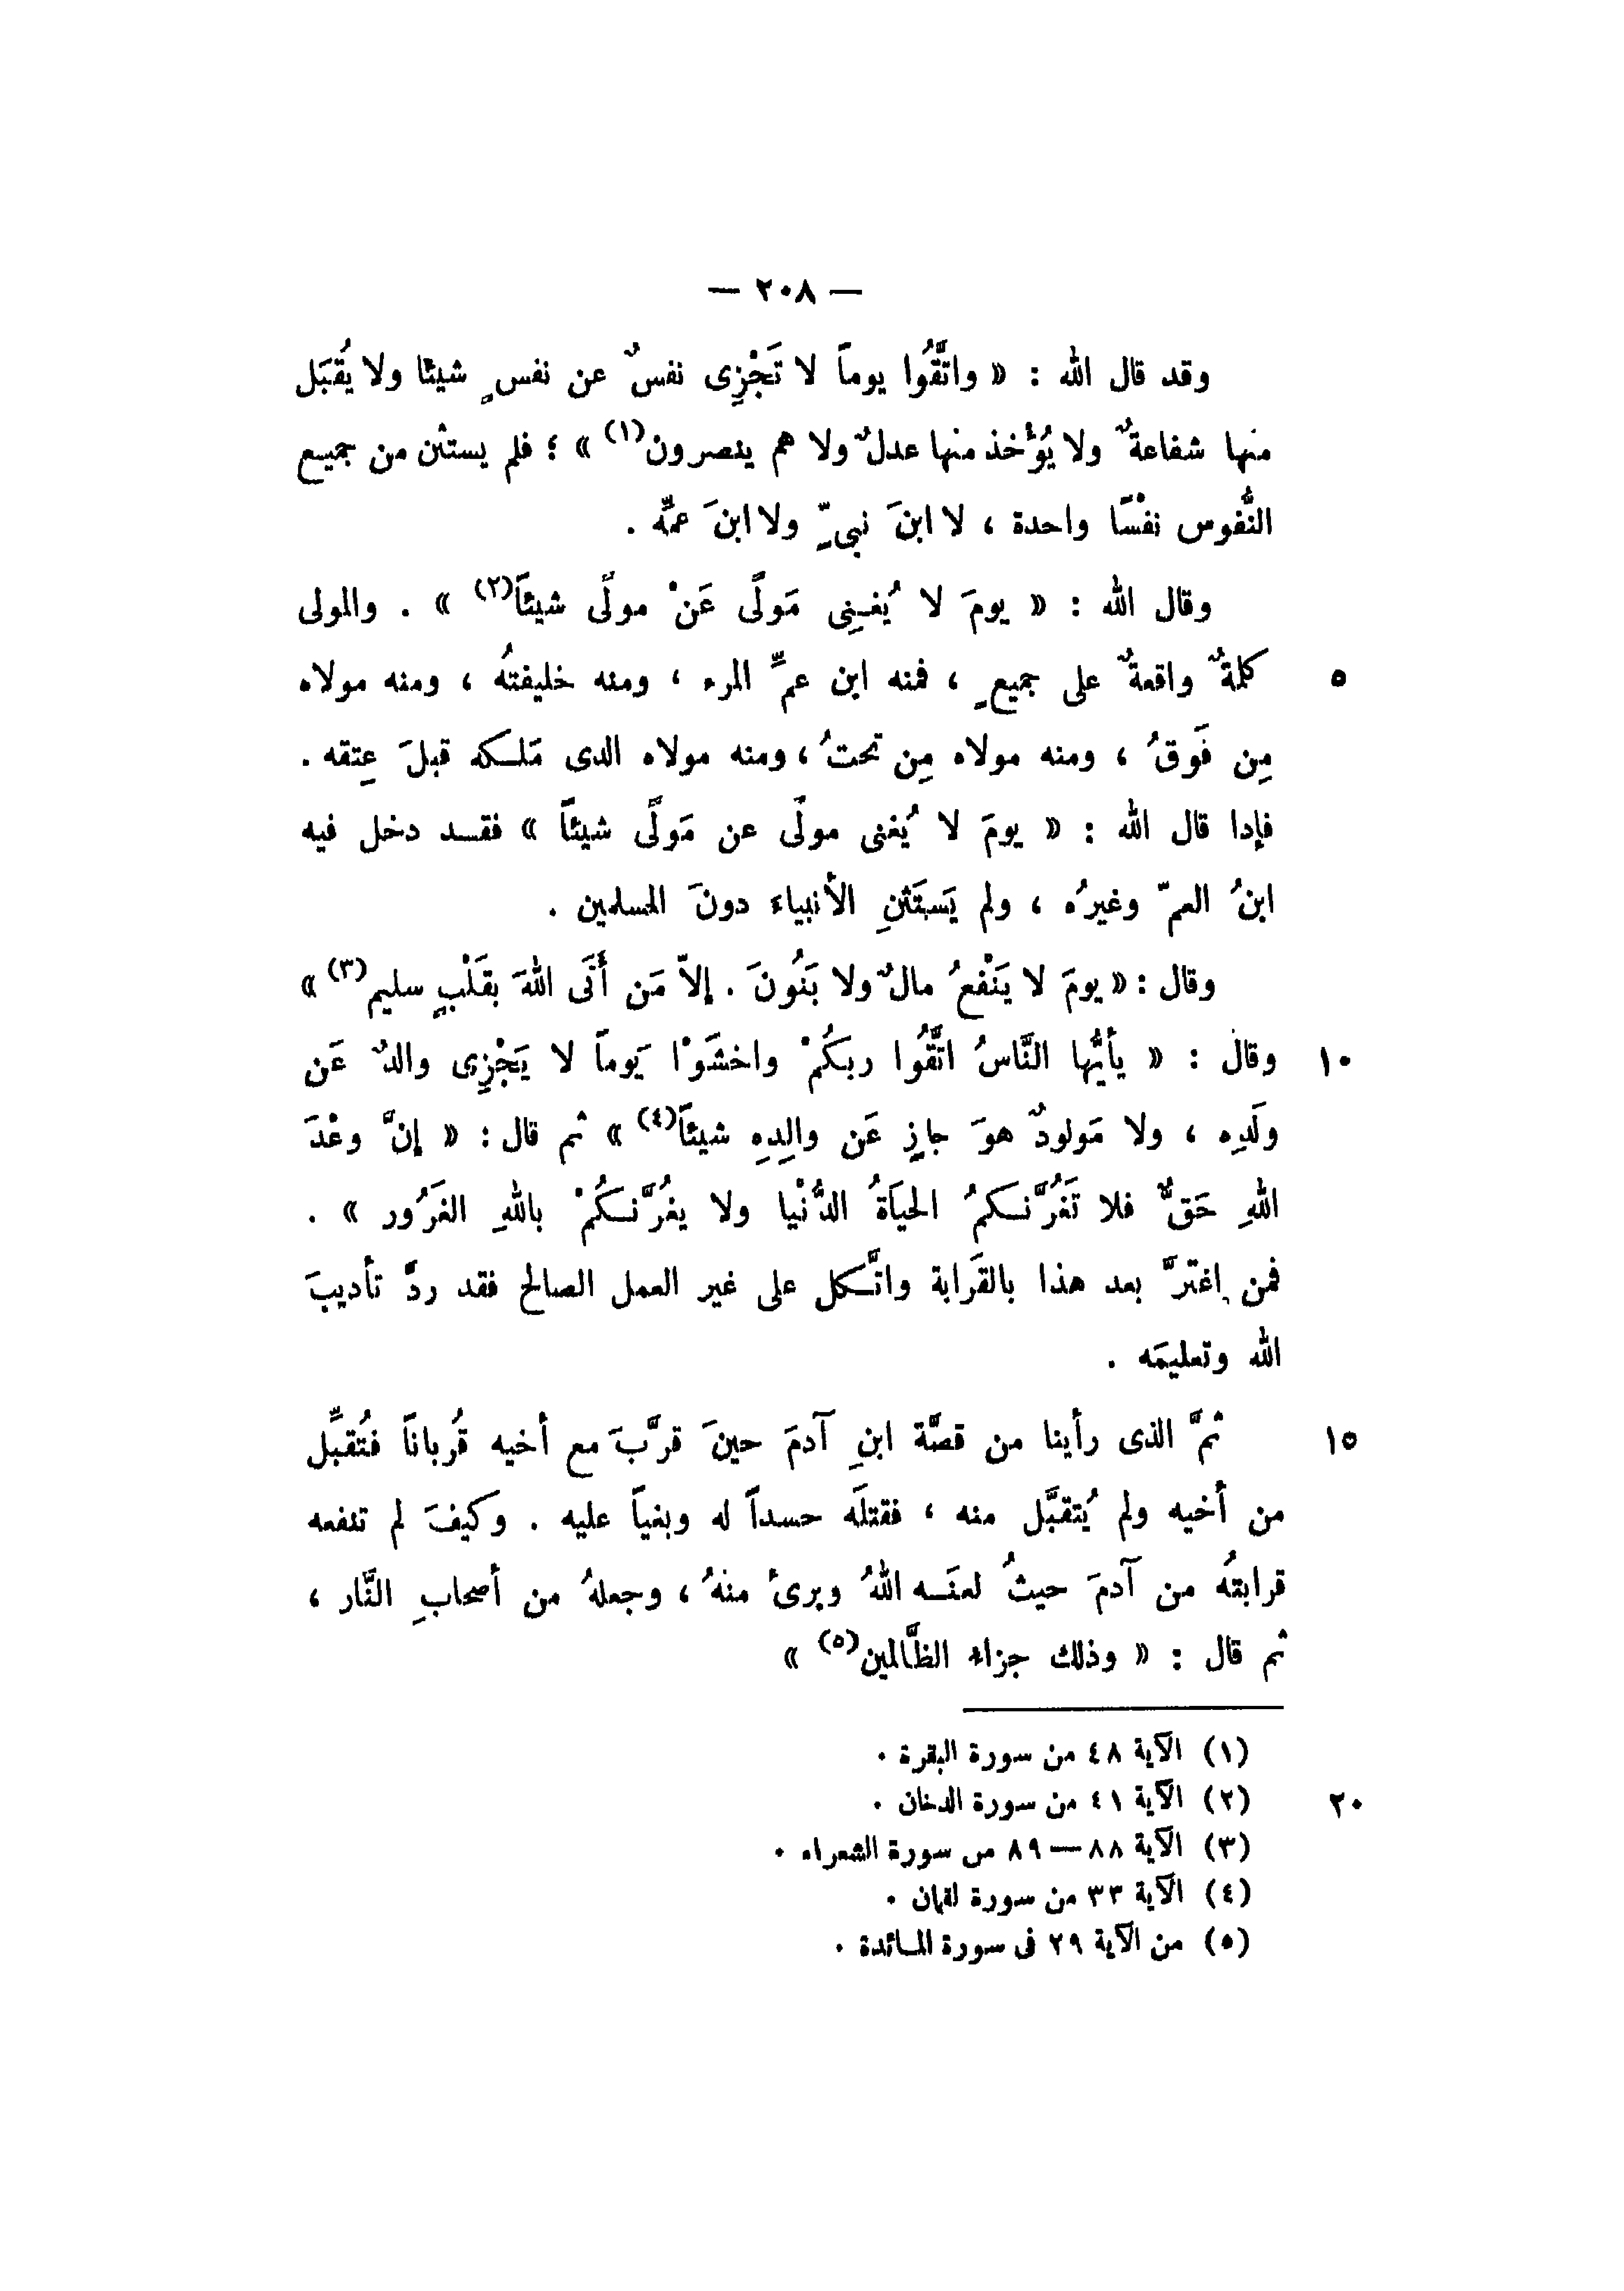 — ٢٠٨ —
وقد قال الله : « واتَّقُوا يوماً لا تَجْزِى نفسٌ عن نفسٍ شيئا ولا يُقبَل
منها شفاعةٌ ولا يُؤْخذ منها عدلٌ ولا هم ينصرون(١) » ؛ فلم يستثن من جميع
النُّفوس نفْسًا واحدة ، لا ابنَ نبىٍّ ولا ابنَ عمِّه .
وقال الله : « يومَ لا يُغنِى مَولًى عَنْ مولًى شيئاً(٢) » . والمولى
٥ كلمةٌ واقعةٌ على جميعٍ ، فمنه ابن عمِّ المرء ، ومنه خليفتهُ ، ومنه مولاه
مِن فَوقُ ، ومنه مولاه مِن تحتُ ، ومنه مولاه الدى مَلكه قبلَ عِتقه .
فإدا قال الله : « يومَ لا يُغنى مولًى عن مَولًى شيئاً » فقد دخل فيه
ابنُ العمّ وغيرُه ، ولم يَستَثنِ الأنبياء دونَ المسلمين .
وقال : « يومَ لا يَنْفعُ مالٌ ولا بَنُونَ . إلاّ مَن أَتَى اللهَ بقَلْبٍ سليم(٣) »
١٠ وقال : « يأيُّها النَّاسُ اتَّقُوا ربكُمْ واخشَوْا يَوماً لا يَجْزِى والدٌ عَن
ولَدِه ، ولا مَولودٌ هوَ جازٍ عَن والِدِهِ شيئاً(٤) » ثم قال : « إنَّ وعْدَ
اللهِ حَقٌّ فلا تَغُرَّنكمُ الحيَاةُ الدُّنْيا ولا يغُرَّنكُمْ باللهِ الغَرُور » .
فمن اغترَّ بعد هذا بالقرَابة واتَّكل على غير العمل الصالح فقد ردَّ تأديبَ
الله وتعليمَه .
١٥ ثمَّ الذى رأينا من قصَّة ابنِ آدمَ حينَ قرَّبَ مع أخيه قُرباناً فتُقبِّل
من أخيه ولم يُتقبَّل منه ، فقتلَه حسداً له وبغياً عليه . وكيفَ لم تنفعه
قرابتهُ من آدمَ حيثُ لعنَه اللهُ وبرئ منهُ ، وجعلهُ من أصحابِ النَّار ،
ثم قال : « وذلك جزاء الظَّالمين(٥) »
(١) الآية ٤٨ من سورة البقرة .
٢٠ (٢) الآية ٤١ من سورة الدخان .
(٣) الآية ٨٨ — ٨٩ من سورة الشعراء .
(٤) الآية ٣٣ من سورة لقمان .
(٥) من الآية ٢٩ فى سورة المائدة .